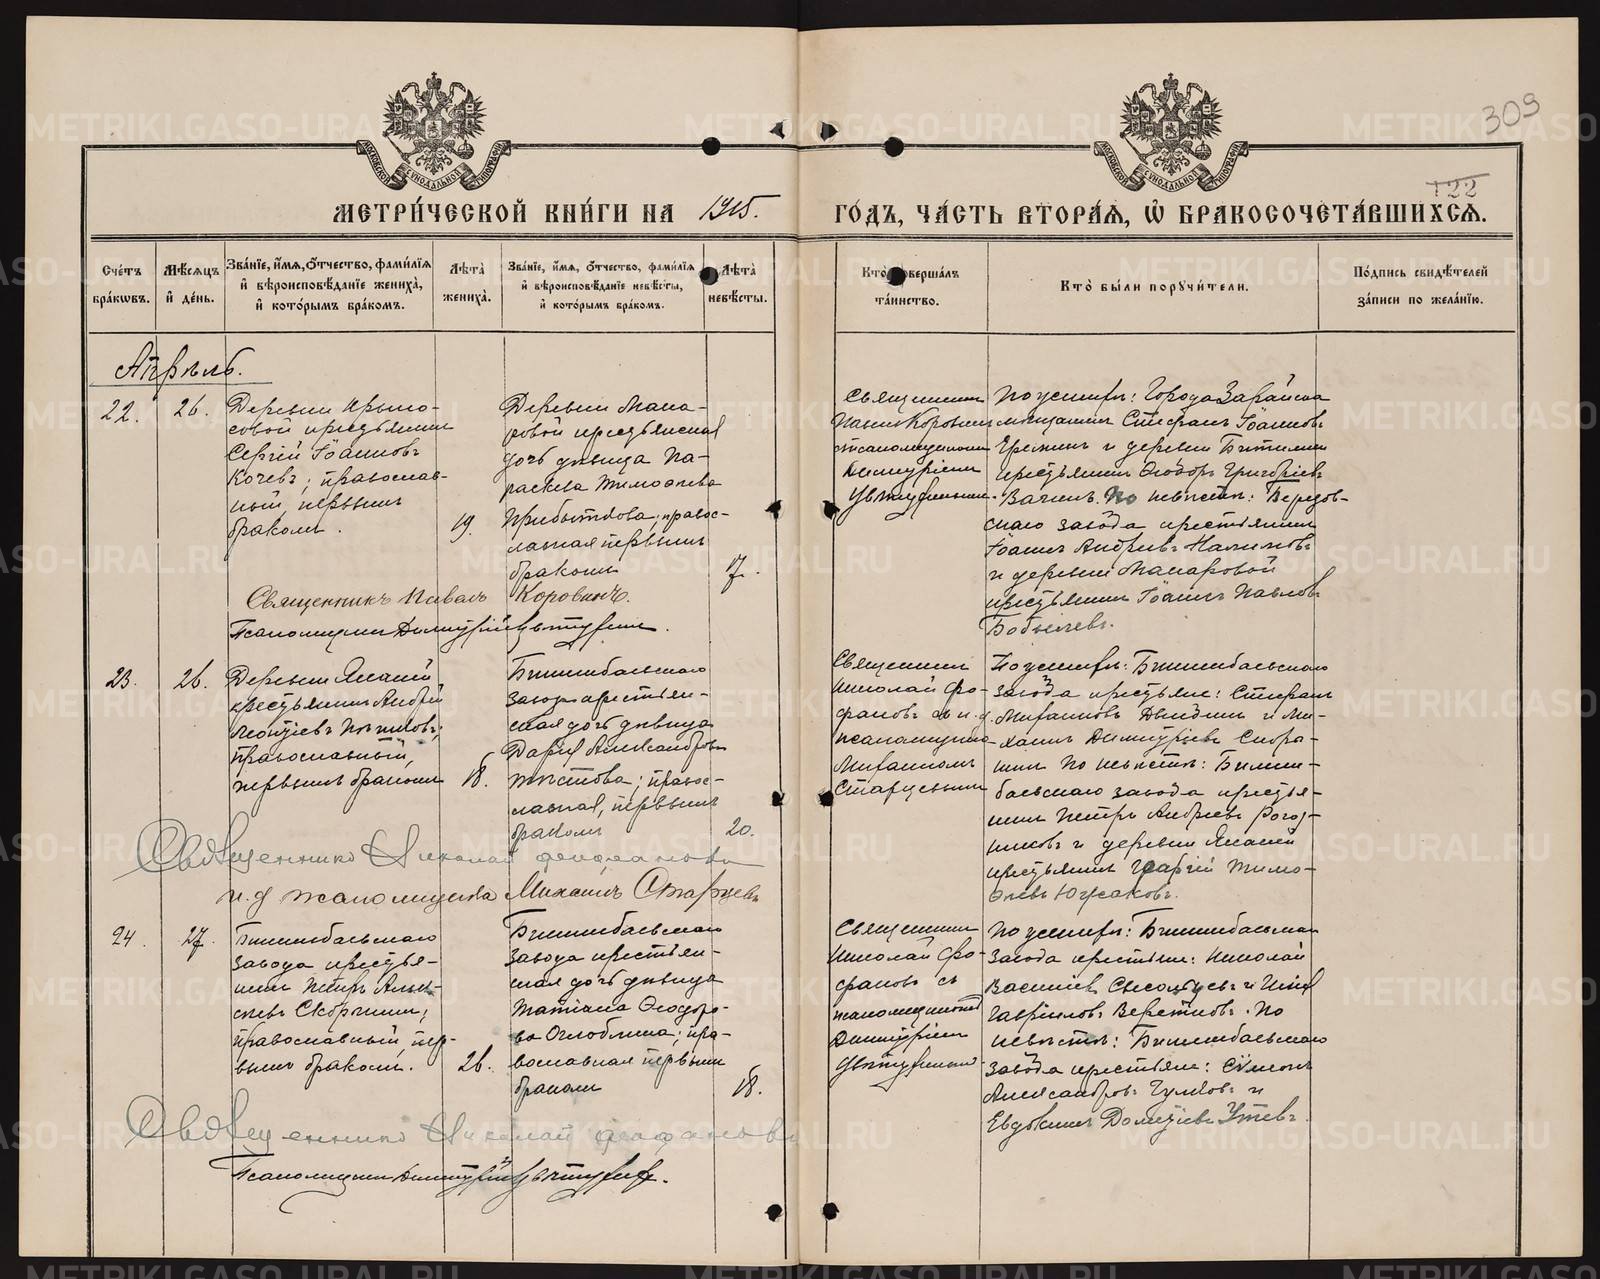 309
122
МЕТРИ́ЧЕСКОЙ КНИ́ГИ НА 1915. ГО́ДЪ, ЧА́СТЬ ВТОРА́Я, Ѽ БРАКОСОЧЕТА́ВШИХСѦ.
Сче́тъ бра́кѡвъ.
Мѣ́сѧцъ и҆ де́нь.
Зва́нїе, и҆́мѧ, ѻ҆́тчество, фами́лїѧ и҆ вѣроисповѣ́данїе жениха̀, и҆ кото́рымъ бра́комъ.
Лѣта̀ жениха̀.
Зва́нїе, и҆́мѧ, ѻ҆́тчество, фами́лїѧ и҆ вѣроисповѣ́данїе невѣ́сты, и҆ кото́рымъ бра́комъ.
Лѣта̀ невѣ́сты.
Кто̀ соверша́лъ та́инство.
Кто̀ бы́ли порꙋчи́тели.
По́дпись свидѣ́телей за́писи по жела́нїю.
Апрѣль.
22.
26.
Деревни Крыло-
совой крестьянинъ
Сергій Іоанновъ
Кочевъ; православ-
ный, первымъ
бракомъ.
19.
Деревни Мака-
ровой крестьянская
дочь дѣвица Па-
раскева Тимоѳеева
Прибыткова; правос-
лавная первымъ
бракомъ
17.
Священникъ
Павелъ Коровинъ
съ псаломщикомъ
Димитріемъ
По женихѣ: Города Зарайска
мѣщанинъ Стефанъ Іоанновъ
и деревни Битимки
крестьянинъ Ѳеодоръ Григоріевъ
По невѣстѣ: Березов-
скаго завода крестьянинъ
Іоаннъ Андреевъ Налимовъ
и деревни Макаровой
крестьянинъ Іоаннъ Павловъ
Бобылевъ.
Священникъ Павелъ Коровинъ.
Псаломщикъ Димитрій
23.
26.
Деревни
крестьянинъ Андрей
Леонтіевъ
православный,
первымъ бракомъ
18.
Билимбаевскаго
завода крестьян-
ская дочь дѣвица
Дарія Александрова
православ-
лавная, первымъ
бракомъ
20.
Священникъ
Николай Фео-
фановъ съ и.д.
псаломщика
Михаиломъ
Старцевымъ
По женихѣ: Билимбаевскаго
завода крестьяне: Стефанъ
и Ми-
хаилъ Димитріевъ Скоры-
нинъ По невѣстѣ: Билим-
баевскаго завода крестья-
нинъ Петръ Андреевъ Рогоз-
никовъ и деревни
крестьянинъ Георгій Тимо-
ѳеевъ Южаковъ.
Священникъ Николай Феофановъ
и.д. псаломщика Михаилъ Старцевъ
24.
27.
Билимбаевскаго
завода крестья-
нинъ Петръ Алек-
сѣевъ Скорынинъ;
православный, пер-
вымъ бракомъ.
26.
Билимбаевскаго
завода крестьян-
ская дочь дѣвица
Татіана Ѳеодоро-
ва Оглоблина; пра-
вославная первымъ
бракомъ
18.
Священникъ
Николай Фео-
фановъ съ
псаломщикомъ
Димитріемъ
По женихѣ: Билимбаевскаго
завода крестьяне: Николай
Василіевъ и
Гавріиловъ Веретновъ. По
невѣстѣ: Билимбаевскаго
завода крестьяне: Сѵмеонъ
Александровъ и
Евдокимъ
Священникъ Николай Феофановъ
Псаломщикъ Димитрій
METRIKI.GASO-URAL.RU